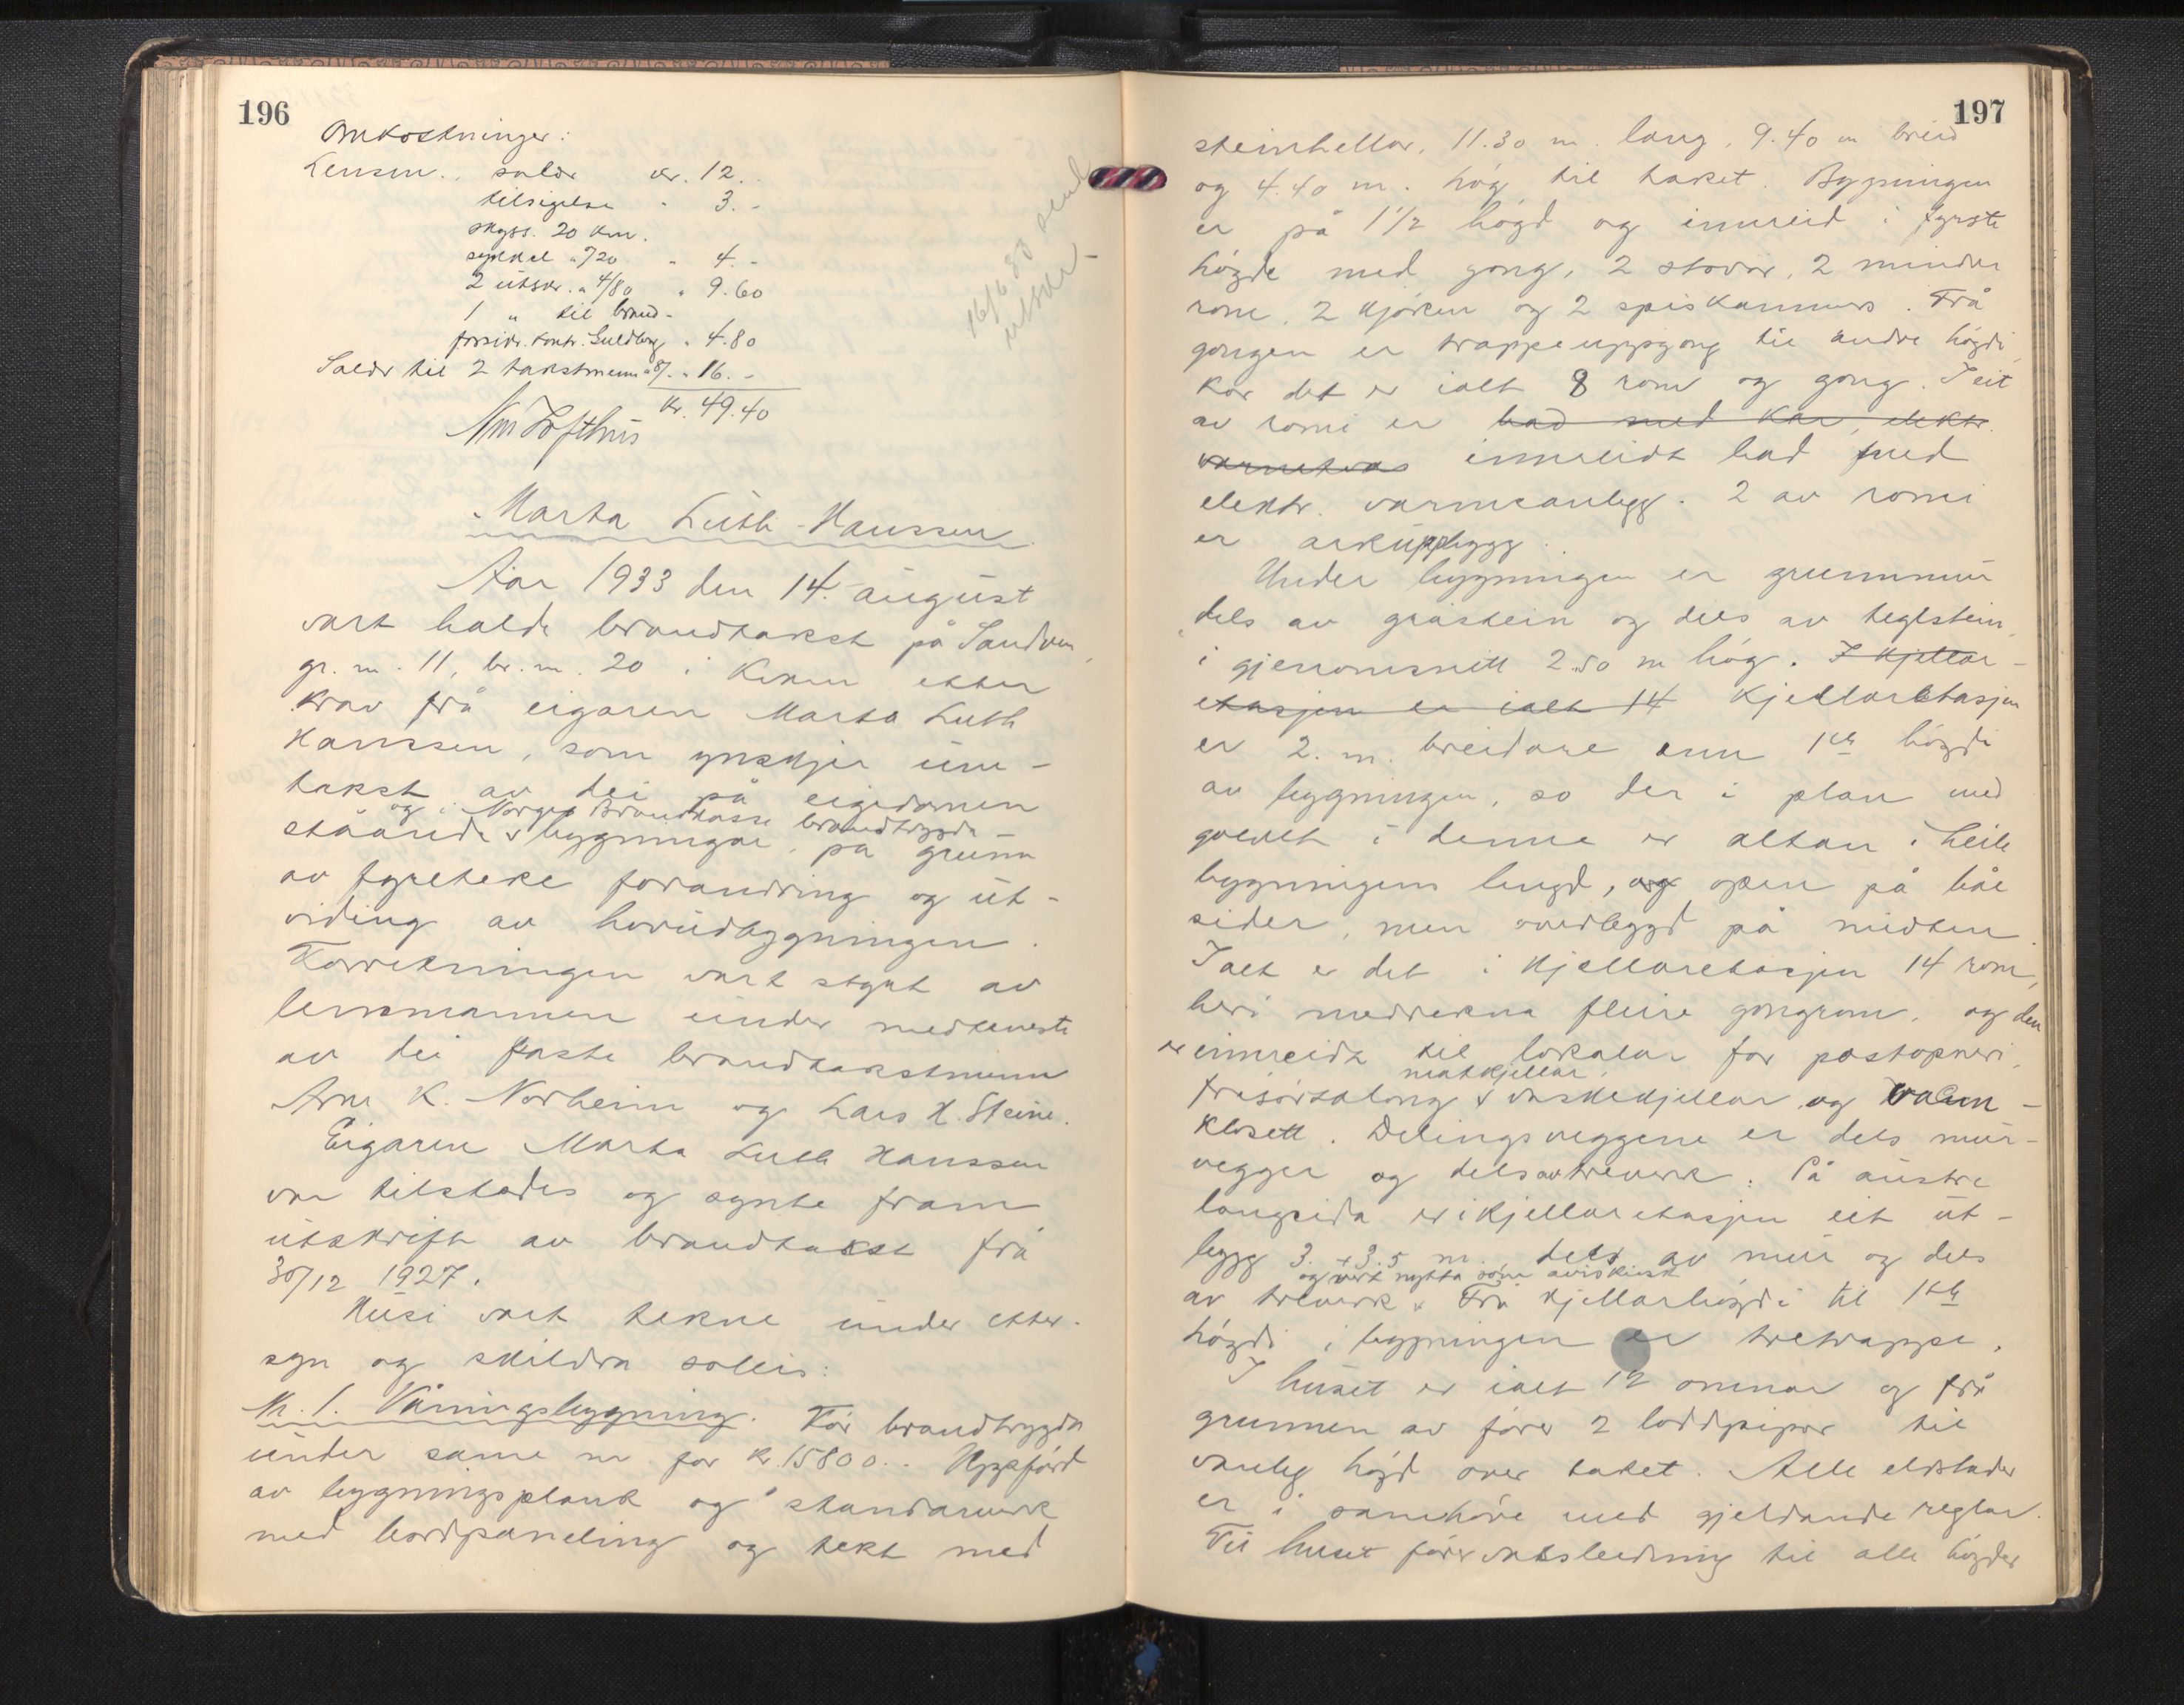 196
Omkostninger:
Lensm. salær kr. 12.-
tilsigelse " 3.-
skyss. 20 km.
sykkel a /20 " 4.-
2 utskr. a 4/80 " 9.60
1 " til brand-
forsikr. kontr. Guldberg " 4.80
Salær til 2 takstmenn a 8/- " 16.-
Kr. 49.40
Lofthus
16/6 80 send
utskr
Marta Luth-Hanssen.
Aar 1933 den 14. august
vart halde brandtakst på Sandven,
gr. nr. 11, br. nr. 20 i Kvam etter
krav frå eigaren Marta Luth
Hanssen, som ynskjer um-
takst av dei på eigedomen
og i Norges Brandkasse brandtrygda
ståande v bygningar, på grunn
av fyreteke forandring og ut-
viding av hovudbygningen.
Forretningen vart styrt av
lensmannen under medteneste
av dei faste brandtakstmenn
Arne K. Norheim og Lars H. Steine.
Eigaren Marta Luth Hanssen
var tilstades og synte fram
utskrift av brandtakst frå
30/12 1927.
Husi vart tekne under etter-
syn og skildra soleis:
Nr. 1. Våningsbygning. Før brandtrygda
under same nr. for kr. 15800.-. Uppførd
av bygningsplank og standarverk
med bordpaneling og tekt med
197
steinhellar, 11.30 m. lang, 9.40 m breid
og 4.40 m. høg til taket. Bygningen
er på 1 1/2 høgd og innreid i fyrste
høgde med gong, 2 stovor, 2 mindre
rom, 2 kjøken og 2 spiskammers. Frå
gongen er trappeuppgong til andre høgdi,
kor det er ialt 8 rom og gong. I eit
av romi er bad med kar, elektr.
varmetvas innreidt bad med
elektr. varmeanlegg. 2 av romi
er arkuppbygg.
Under bygningen er grunnmur
dels av gråstein og dels av teglstein,
i gjenomsnitt 2.50 m høg. I kjellar-
etasjen er ialt 14 Kjellaretasjen
er 2. m. breidare enn 1ste høgdi
av bygningen, so der i plan med
golvet i denne er altan i heile
bygningens lengd, og open på båe
sider, men overbygd på midten.
Ialt er det i kjellaretasjen 14 rom,
heri medrekna fleire gongrom, og den
er innreidt til lokalar for postopneri,
matkjellar,
frisørsalong v vaskekjellar og vann-
klosett. Delingsveggene er dels mur-
vegger og dels av treverk. På austre
langsida er i kjellaretasjen eit ut-
bygg 3. x 3.5 m. dels av mur og dels
og vert nytta som aviskiosk
av treverk v Frå kjellarhøgdi til 1ste
høgdi i bygningen er tretrappe.
I huset er ialt 12 omnar og frå
grunnen av fører 2 loddpipor til
vanleg høgd over taket. Alle eldstader
er i samhøve med gjeldande reglar.
Til huset fører vatsleidning til alle høgder